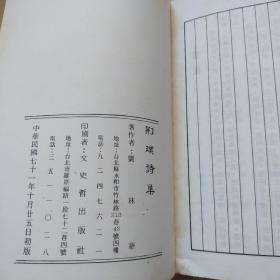 荆璞詩集
著作者：劉林華
地址：台北縣永和市竹林路
218巷42號四樓
電話：九二四七六二一
印刷者：文史哲出版社
地址：台北市羅斯福路一段七十二巷四號
電話：三五一一〇二八
中華民國七十一年十月廿五日初版